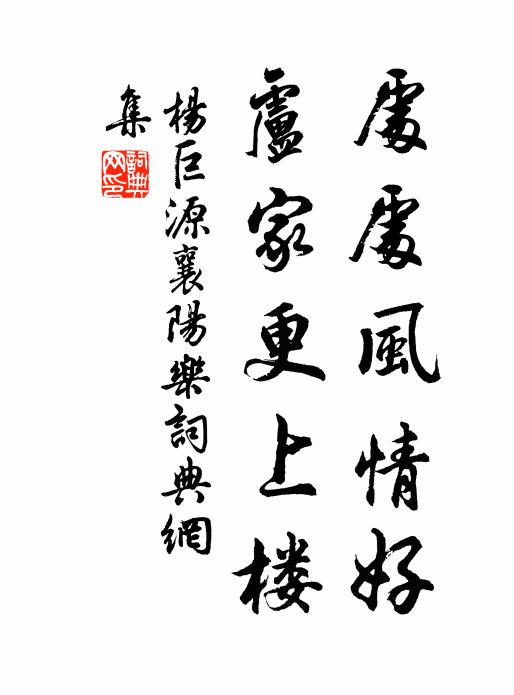 處處風情好
盧家更上楼
楊巨源襄陽樂詞典網
集
詞典网印